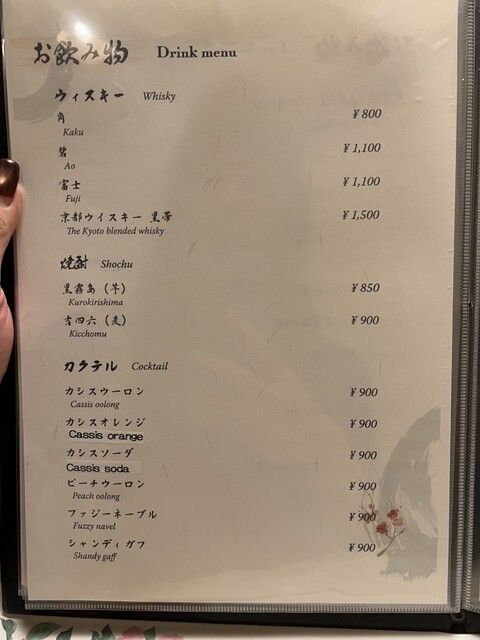 お飲み物 Drink menu
ウィスキー Whisky
角 ¥800
Kaku
碧 ¥1,100
Ao
富士 ¥1,100
Fuji
京都ウイスキー 黒帯 ¥1,500
The Kyoto blended whisky
焼酎 Shochu
黒霧島（芋） ¥850
Kurokirishima
吉四六（麦） ¥900
Kicchomu
カクテル Cocktail
カシスウーロン ¥900
Cassis oolong
カシスオレンジ ¥900
Cassis orange
カシスソーダ ¥900
Cassis soda
ピーチウーロン ¥900
Peach oolong
ファジーネーブル ¥900
Fuzzy navel
シャンディガフ ¥900
Shandy gaff